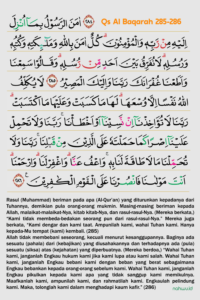 Qs Al Baqarah 285-286
اٰمَنَ الرَّسُوْلُ بِمَآ اُنْزِلَ
اِلَيْهِ مِنْ رَّبِّهٖ وَالْمُؤْمِنُوْنَۗ كُلٌّ اٰمَنَ بِاللّٰهِ وَمَلٰۤىِٕكَتِهٖ وَكُتُبِهٖ
وَرُسُلِهٖۗ لَا نُفَرِّقُ بَيْنَ اَحَدٍ مِّنْ رُّسُلِهٖۗ وَقَالُوْا سَمِعْنَا
وَاَطَعْنَا غُفْرَانَكَ رَبَّنَا وَاِلَيْكَ الْمَصِيْرُ ٢٨٥ لَا يُكَلِّفُ
اللّٰهُ نَفْسًا اِلَّا وُسْعَهَاۗ لَهَا مَا كَسَبَتْ وَعَلَيْهَا مَا اكْتَسَبَتْۗ
رَبَّنَا لَا تُؤَاخِذْنَآ اِنْ نَّسِيْنَآ اَوْ اَخْطَأْنَاۚ رَبَّنَا وَلَا تَحْمِلْ
عَلَيْنَآ اِصْرًا كَمَا حَمَلْتَهٗ عَلَى الَّذِيْنَ مِنْ قَبْلِنَاۚ رَبَّنَا وَلَا
تُحَمِّلْنَا مَا لَا طَاقَةَ لَنَا بِهٖۚ وَاعْفُ عَنَّاۗ وَاغْفِرْ لَنَاۗ وَارْحَمْنَاۗ
اَنْتَ مَوْلٰىنَا فَانْصُرْنَا عَلَى الْقَوْمِ الْكٰفِرِيْنَ ٢٨٦
Rasul (Muhammad) beriman pada apa (Al-Qur'an) yang diturunkan kepadanya dari
Tuhannya, demikian pula orang-orang mukmin. Masing-masing beriman kepada
Allah, malaikat-malaikat-Nya, kitab-kitab-Nya, dan rasul-rasul-Nya. (Mereka berkata,)
"Kami tidak membeda-bedakan seorang pun dari rasul-rasul-Nya." Mereka juga
berkata, "Kami dengar dan kami taat. Ampunilah kami, wahai Tuhan kami. Hanya
kepada-Mu tempat (kami) kembali. (285)
Allah tidak membebani seseorang, kecuali menurut kesanggupannya. Baginya ada
sesuatu (pahala) dari (kebajikan) yang diusahakannya dan terhadapnya ada (pula)
sesuatu (siksa) atas (kejahatan) yang diperbuatnya. (Mereka berdoa,) "Wahai Tuhan
kami, janganlah Engkau hukum kami jika kami lupa atau kami salah. Wahai Tuhan
kami, janganlah Engkau bebani kami dengan beban yang berat sebagaimana
Engkau bebankan kepada orang-orang sebelum kami. Wahai Tuhan kami, janganlah
Engkau pikulkan kepada kami apa yang tidak sanggup kami memikulnya.
Maafkanlah kami, ampunilah kami, dan rahmatilah kami. Engkaulah pelindung
kami. Maka, tolonglah kami dalam menghadapi kaum kafir." (286)